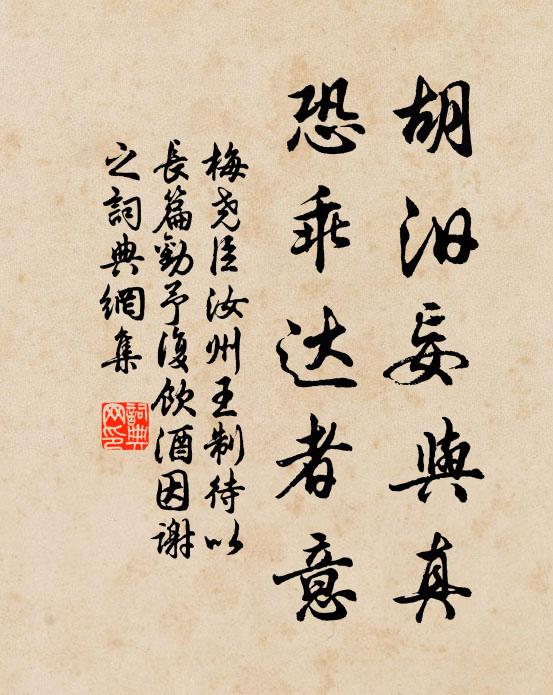 胡汩妄與真
恐乖达者意
梅尧臣汝州王制待以
長篇勸予復飲酒因謝
之詞典網集
詞典网印